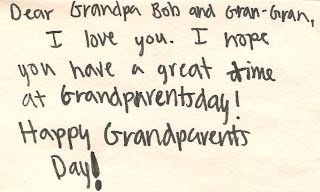 Dear Grandpa Bob and Gran-Gran,
I love you. I hope
you have a great time
at Grandparentsday!
Happy Grandparents
Day!